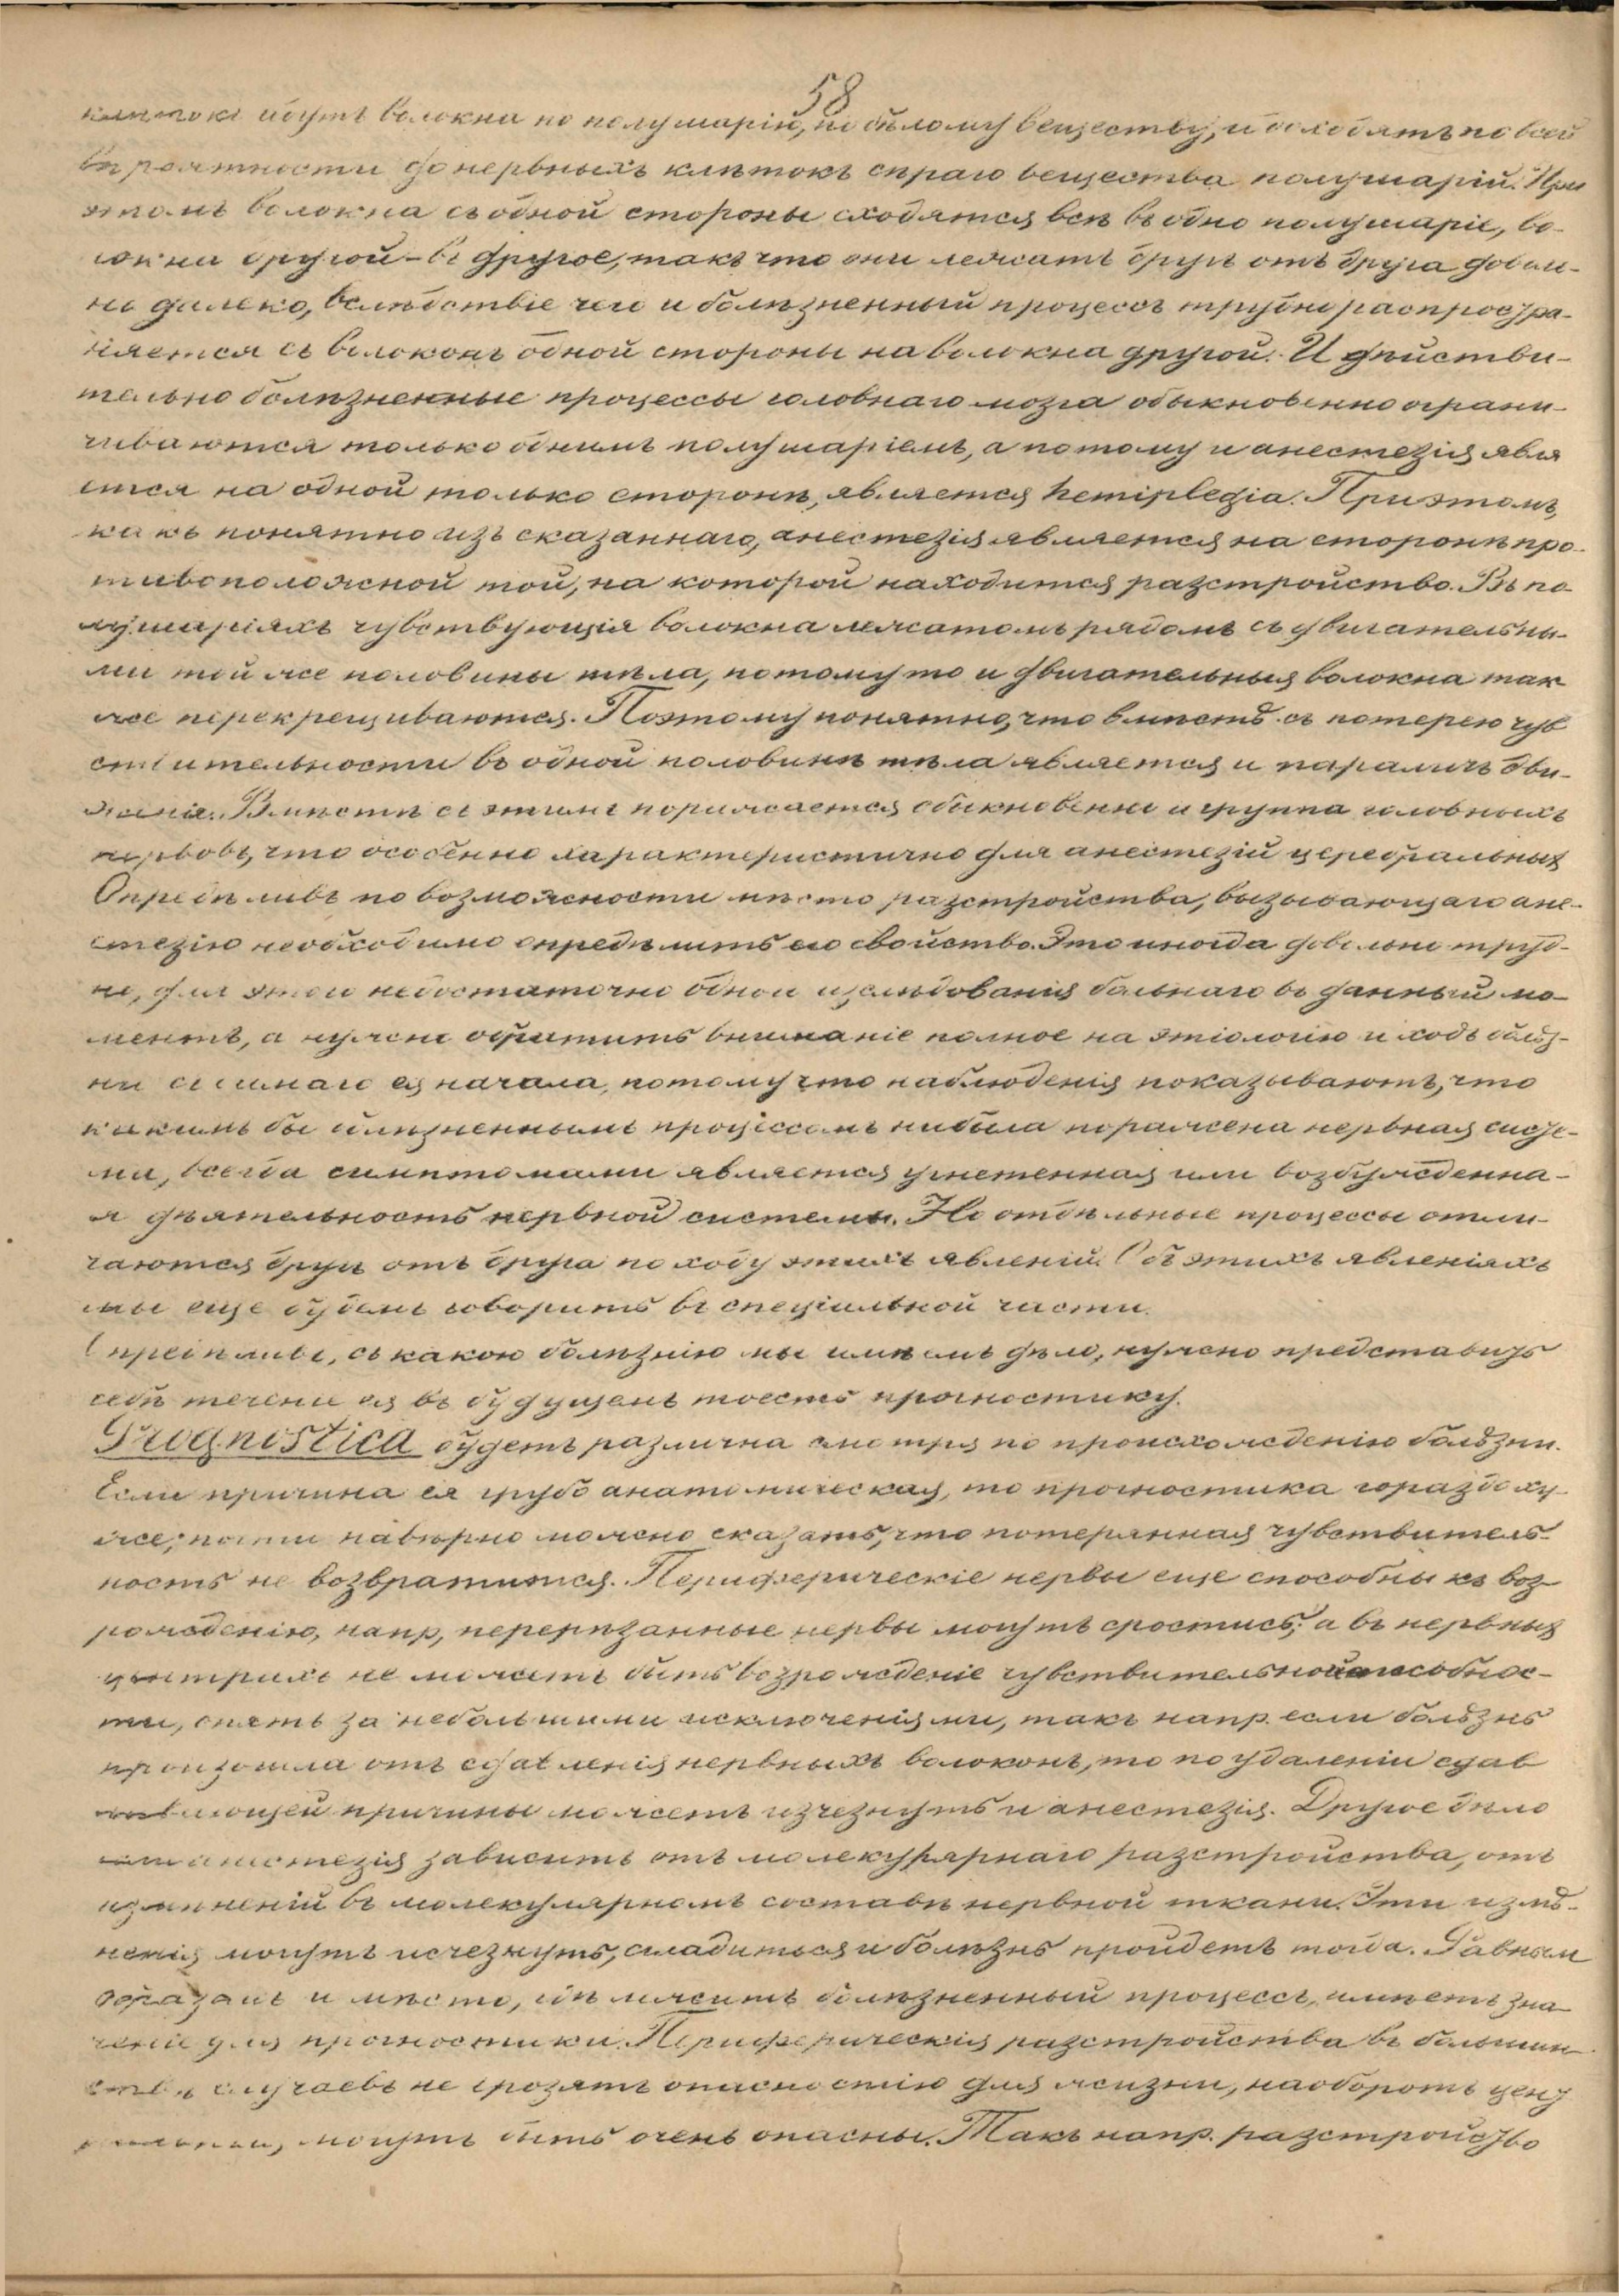 58
клѣтокъ идутъ волокна по полушарію, по бѣлому веществу, и доходятъ по всей
вѣроятности до нервныхъ клѣтокъ сѣраго вещества полушарій. При
этомъ волокна съ одной стороны сходятся всѣ въ одно полушаріе, во-
локна другой - въ другое, такъ что они лежатъ другъ отъ друга доволь-
но далеко, вслѣдствіе чего и болѣзненный процессъ трудно распростра-
няется съ волоконъ одной стороны на волокна другой. И дѣйстви-
тельно болѣзненные процессы головнаго мозга обыкновенно ограни-
чиваются только однимъ полушаріемъ, а потому и анестезія явля
ется на одной только сторонѣ, является hemiplegia. При этомъ,
какъ понятно изъ сказаннаго, анестезія является на сторонѣ про-
тивоположной той, на которой находится разстройство. Въ по-
лушаріяхъ чувствующія волокна лежатъ рядомъ съ двигательны-
ми той же половины тѣла, потому то и двигательныя волокна так
же перекрещиваются. Поэтому понятно, что вмѣстѣ съ потерею чув
ствительности въ одной половинѣ тѣла является и параличъ дви-
женія. Вмѣстѣ съ этимъ поражается обыкновенно и группа головныхъ
нервовъ, что особенно характеристично для анестезій церебральныхъ
Опредѣливъ по возможности мѣсто разстройства, вызывающаго ане-
стезію необходимо опредѣлить его свойство. Это иногда довольно труд-
но, для этого недостаточно одного изслѣдованія больнаго въ данный мо-
ментъ, а нужно обратить вниманіе полное на этіологію и ходъ болѣз-
ни съ самаго ея начала, потому что наблюденія показываютъ, что
какимъ бы болѣзненнымъ процессомъ ни была поражена нервная систе-
ма, всегда симптомами является угнетенная или возбужденна-
я дѣятельность нервной системы. Но отдѣльные процессы отли-
чаются другъ отъ друга по ходу этихъ явленій. Объ этихъ явленіяхъ
мы еще будемъ говорить въ спеціальной части.
Опредѣливъ, съ какою болѣзнію мы имѣемъ дѣло, нужно представить
себѣ теченіе ея въ будущемъ тоесть прогностику.
Prognostica будетъ различна смотря по происхожденію болѣзни.
Если причина ея грубо анатомическая, то прогностика гораздо ху-
же; почти навѣрно можно сказать, что потерянная чувствитель-
ность не возвратится. Периферическіе нервы еще способны къ воз-
рожденію, напр, перерѣзанные нервы могутъ сростись, а въ нервныхъ
центрахъ не можетъ быть возрожденіе чувствительной способнос-
ти, опять за небольшими исключеніями, такъ напр. если болѣзнь
произошла отъ сдавленія нервныхъ волоконъ, то по удаленіи сдав
ливающей причины можетъ изчезнуть и анестезія. Другое дѣло
анестезія зависитъ отъ молекулярнаго разстройства, отъ
измѣненій въ молекулярномъ составѣ нервной ткани. Эти измѣ-
ненія могутъ исчезнуть, сгладиться и болѣзнь пройдетъ тогда. Равным
образомъ и мѣсто, гдѣ лежитъ болѣзненный процессъ, имѣетъ зна
ченіе для прогностики. Периферическія разстройства въ большин
ствѣ случаевъ не грозятъ опасностію для жизни, наоборотъ цент
ральныя, могутъ быть очень опасны. Такъ напр. разстройство